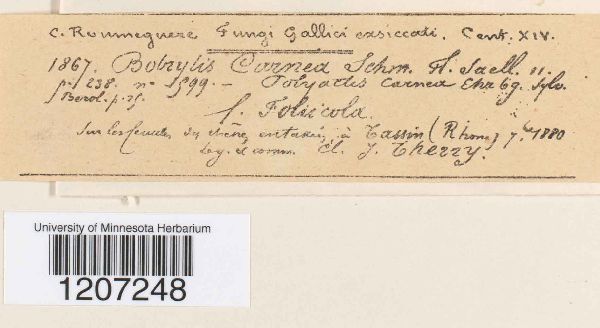 C. Roumeguere Fungi Gallici exsiccati. Cent. XIV.
1867. Botrytis Carnea Schm. Fl. Saell. II.
p. 238. no 1599. — Polyactis Carnea Ehrbg. Sylv.
Berol. p. 25.
f. Foliicola.
Sur les feuilles de chêne entassées à Tassin (Rhone) 7bre 1880
Leg. et comm. cl. J. Therry.
University of Minnesota Herbarium
1207248